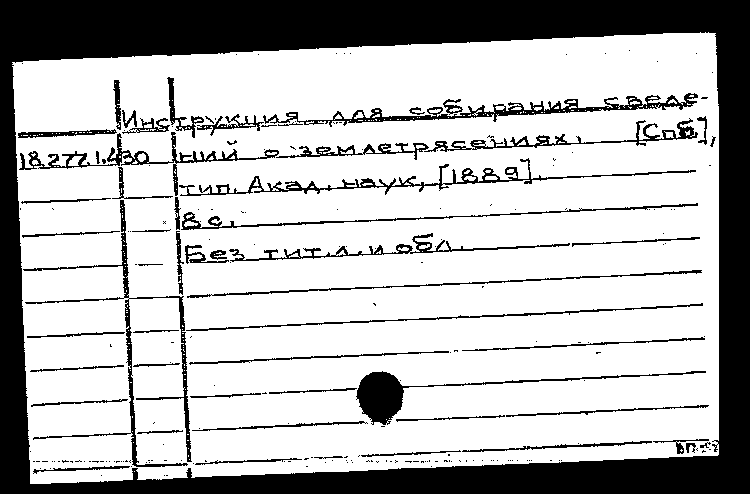 Инструкция для собирания сведе-
18.277.1.430 ний о землетрясениях. [Спб],
тип. Акад. наук, [1889].
8 с.
Без тит. л. и обл.